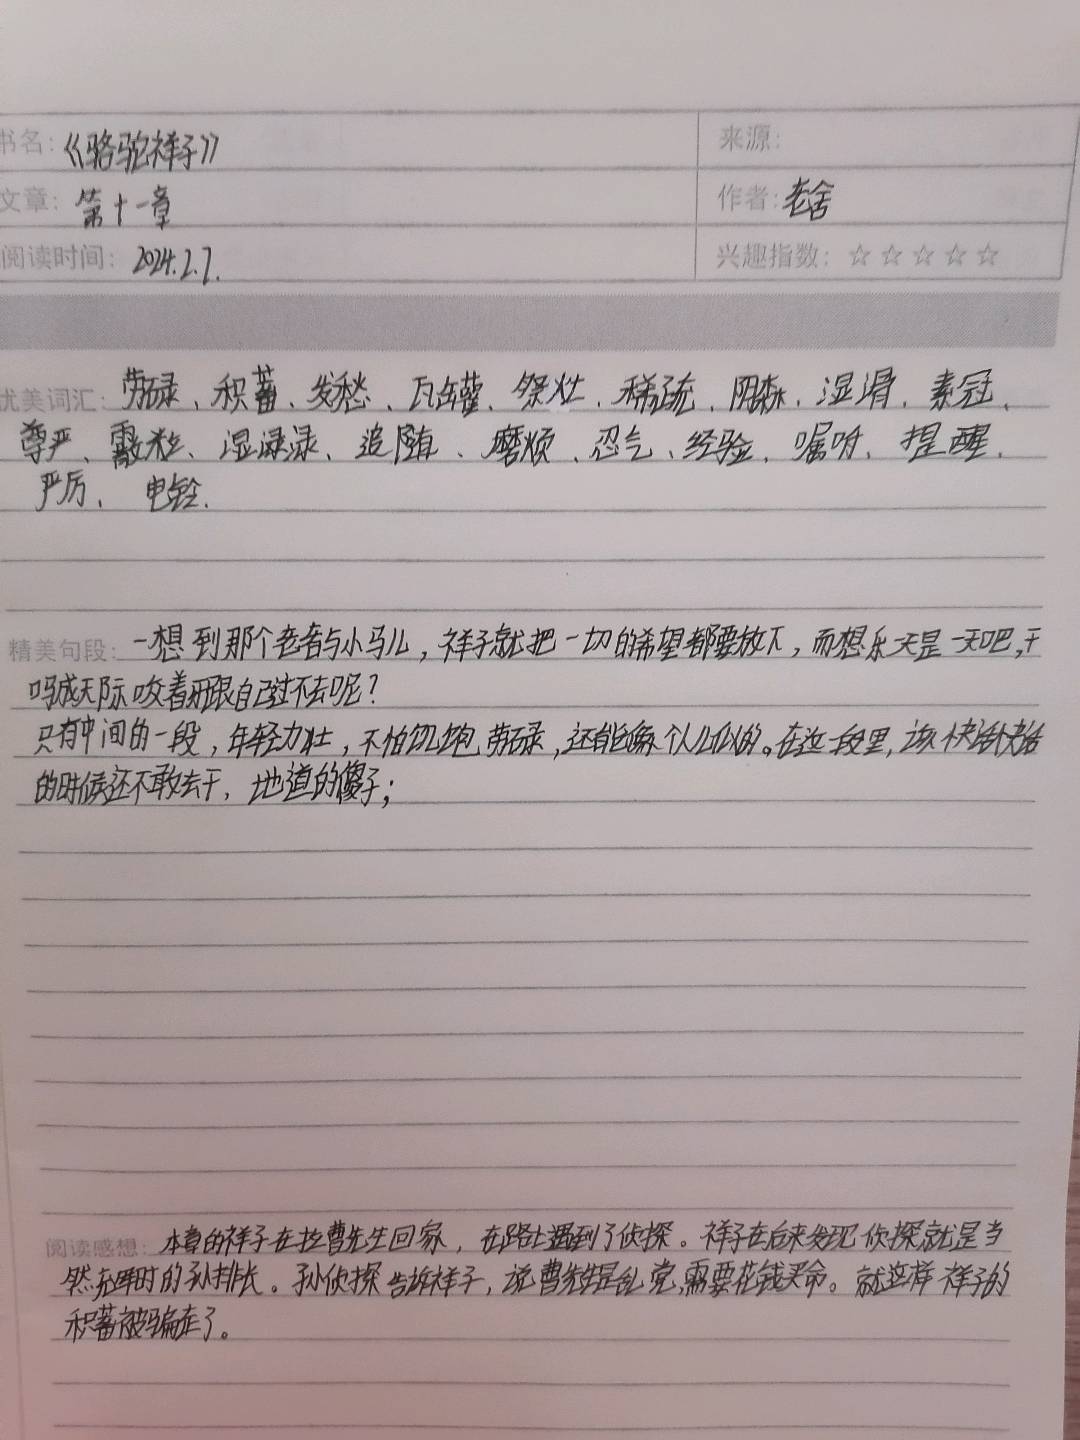 书名：《骆驼祥子》 来源：
文章：第十一章 作者：老舍
阅读时间：2024.2.7. 兴趣指数：☆☆☆☆☆
优美词汇：劳碌、积蓄、发愁、瓦罐、祭灶、稀疏、阴森、湿滑、素冠、
尊严、霰粒、湿漉漉、追随、磨烦、忍气、经验、嘱咐、提醒、
严厉、电铃.
精美句段：一想到那个老者与小马儿，祥子就把一切的希望都要放下，而想乐一天是一天吧，干
吗成天际咬着牙跟自己过不去呢？
只有中间的一段，年轻力壮，不怕饥饱劳碌，还能像个人儿似的。在这一段里，该快活快活
的时候还不敢去干，地道的傻子；
阅读感想：本章的祥子在拉曹先生回家，在路上遇到了侦探。祥子在后来发现侦探就是当
然抓 时的孙排长。孙侦探告诉祥子，说曹先生是乱党，需要花钱买命。就这样祥子的
积蓄被骗走了。